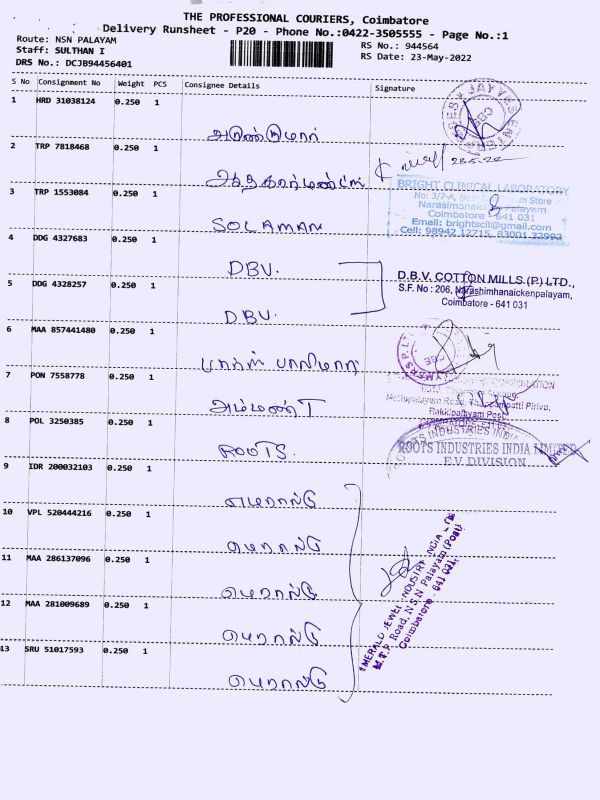 THE PROFESSIONAL COURIERS, Coimbatore
Delivery Runsheet - P20 - Phone No.:0422-3505555 - Page No.:1
Route: NSN PALAYAM
RS No.: 944564
Staff: SULTHAN I
RS Date: 23-May-2022
DRS No.: DCJB94456401
S No Consignment No Weight PCS Consignee Details Signature
1 HRD 31038124 0.250 1
2 TRP 7818468 0.250 1
3 TRP 1553084 0.250 1 SOLAMAN
BRIGHT CLINICAL LABORATORY
No: 3/7-A, Store
Narasimanaic Palayam
Coimbatore - 641 031
Email: brightscil@gmail.com
Cell: 98942 12715, 83001 32993
4 DDG 4327683 0.250 1 DBV.
5 DDG 4328257 0.250 1 DBV.
D.B.V. COTTON MILLS (P.) LTD.,
S.F. No : 206, Narashimhanaickenpalayam,
Coimbatore - 641 031
6 MAA 857441480 0.250 1
7 PON 7558778 0.250 1
8 POL 3250385 0.250 1 ROOTS.
ROOTS INDUSTRIES INDIA LIMITED
E.V. DIVISION
9 IDR 200032103 0.250 1 எமரால்டு
10 VPL 520444216 0.250 1 எமரால்டு
11 MAA 286137096 0.250 1 எமரால்டு
12 MAA 281009689 0.250 1 எமரால்டு
13 SRU 51017593 0.250 1 எமரால்டு
EMERALD JEWEL INDUSTRY INDIA LTD
M.T.P. Road, N.S.N Palayam (Post)
Coimbatore - 641 031.